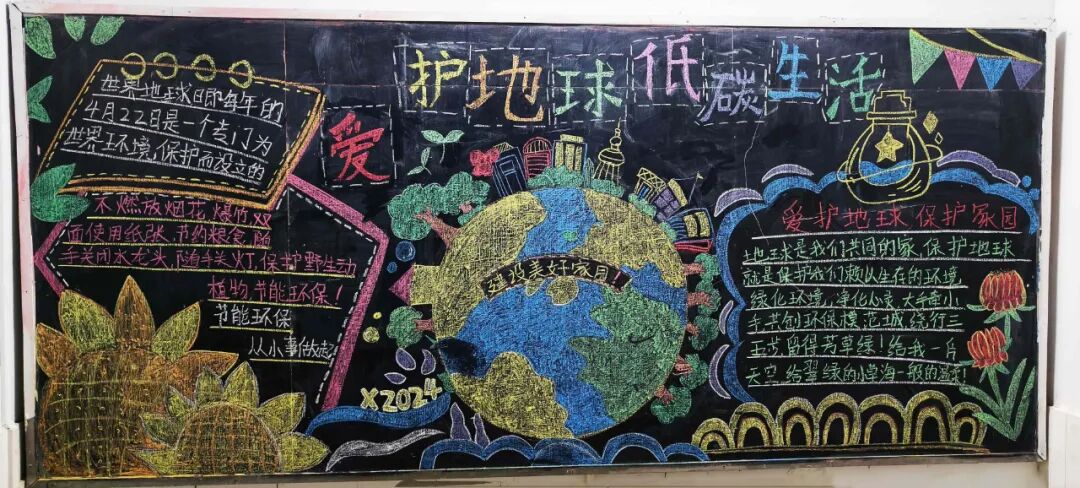 爱护地球低碳生活
世界地球日即每年的
4月22日是一个专门为
世界环境,保护而设立的
不燃放烟花爆竹双
面使用纸张 节约粮食 随
手关闭水龙头,随手关灯,保护野生动
植物 节能环保!
节能环保
从小事做起
建设美好家园!
X2024
爱护地球保护家园
地球是我们共同的家,保护地球
就是保护我们赖以生存的环境
绿化环境,净化心灵 大手牵小
手共创环保模范城 绕行三
五步,留得芳草绿!给我一片
天空 给翠绿的小学海一般的